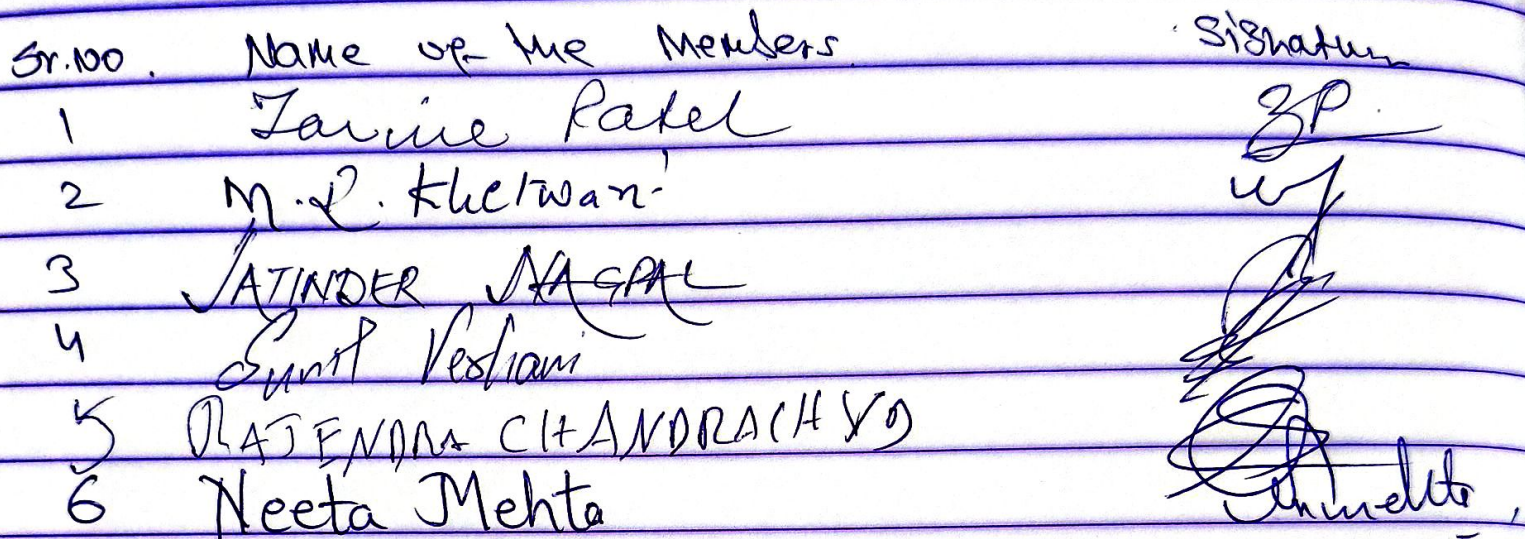 Sr.No. Name of the Members Signature
1 Zarine Patel ZP
2 M.R. Khetwani
3 JATINDER NAGPAL
4 Sunil Veshani
5 RAJENDRA CHANDRACHYD
6 Neeta Mehta Nmehta